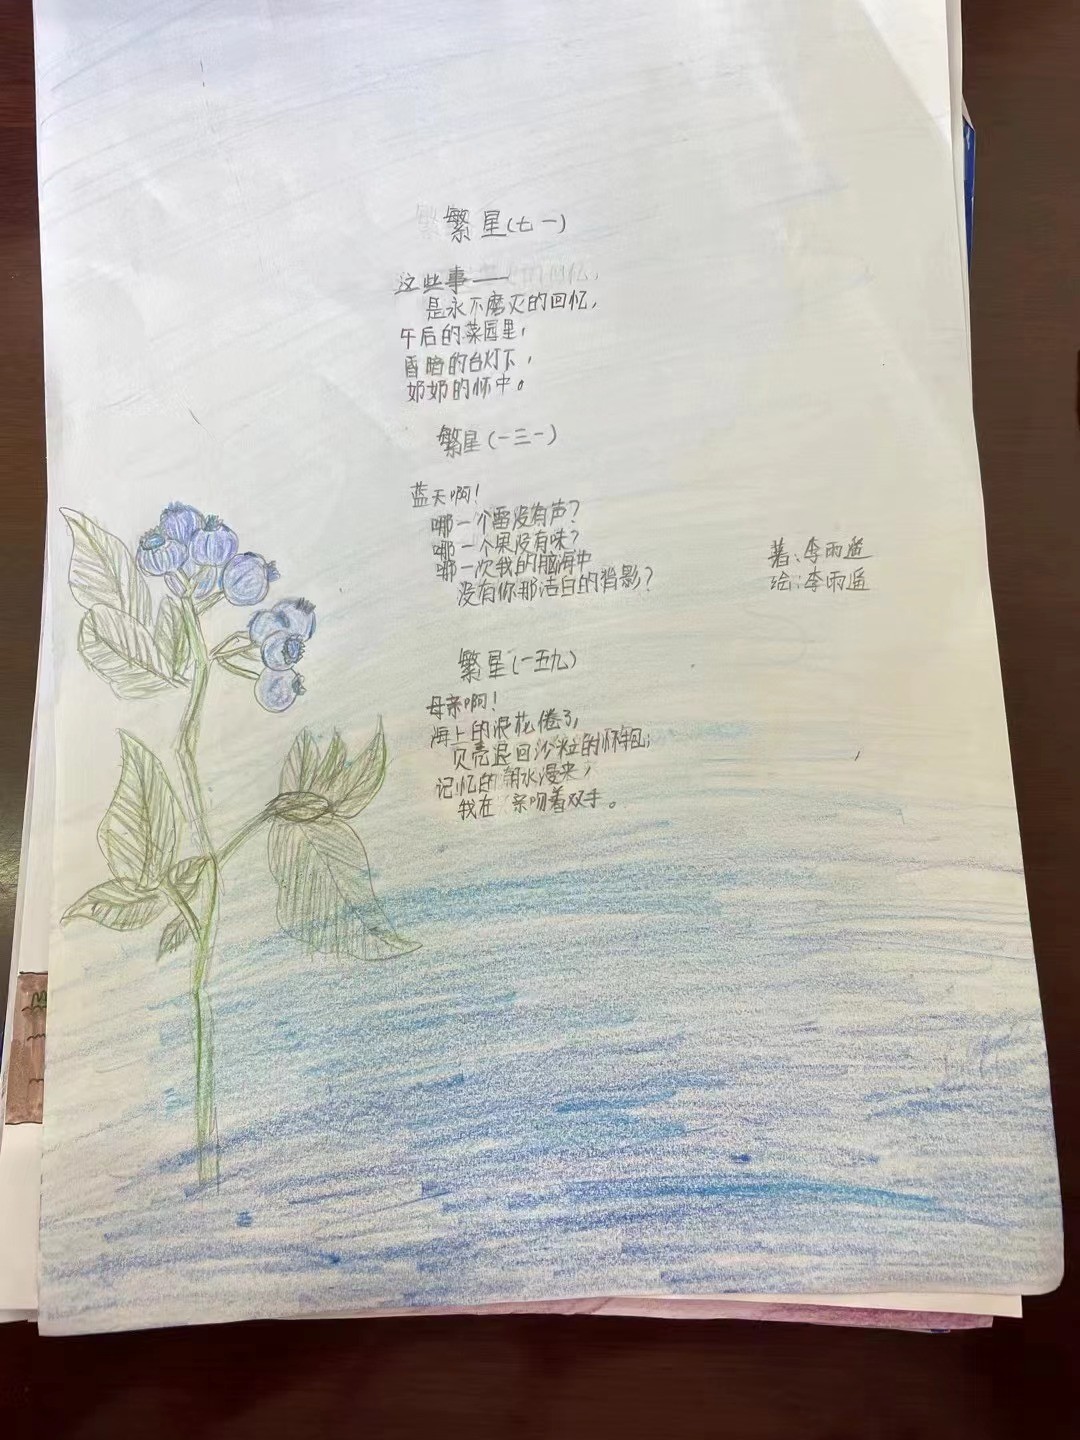 繁星(七一)
这些事——
是永不磨灭的回忆,
午后的菜园里,
昏暗的台灯下,
奶奶的怀中。
繁星(一三一)
蓝天啊!
哪一个雷没有声?
哪一个果没有味?
哪一次我的脑海中
没有你那洁白的背影?
著:李雨遥
绘:李雨遥
繁星(一五九)
母亲啊!
海上的浪花倦了,
贝壳退回沙粒的怀抱;
记忆的潮水漫来,
我在亲吻着双手。